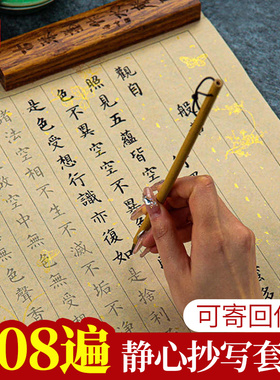 觀自
般
照見五蘊皆空
色不異空空不異
是色受想行識亦復如
是捨利
諸法空相不生不滅不垢
空中無色
可寄回
08遍
静心抄写套